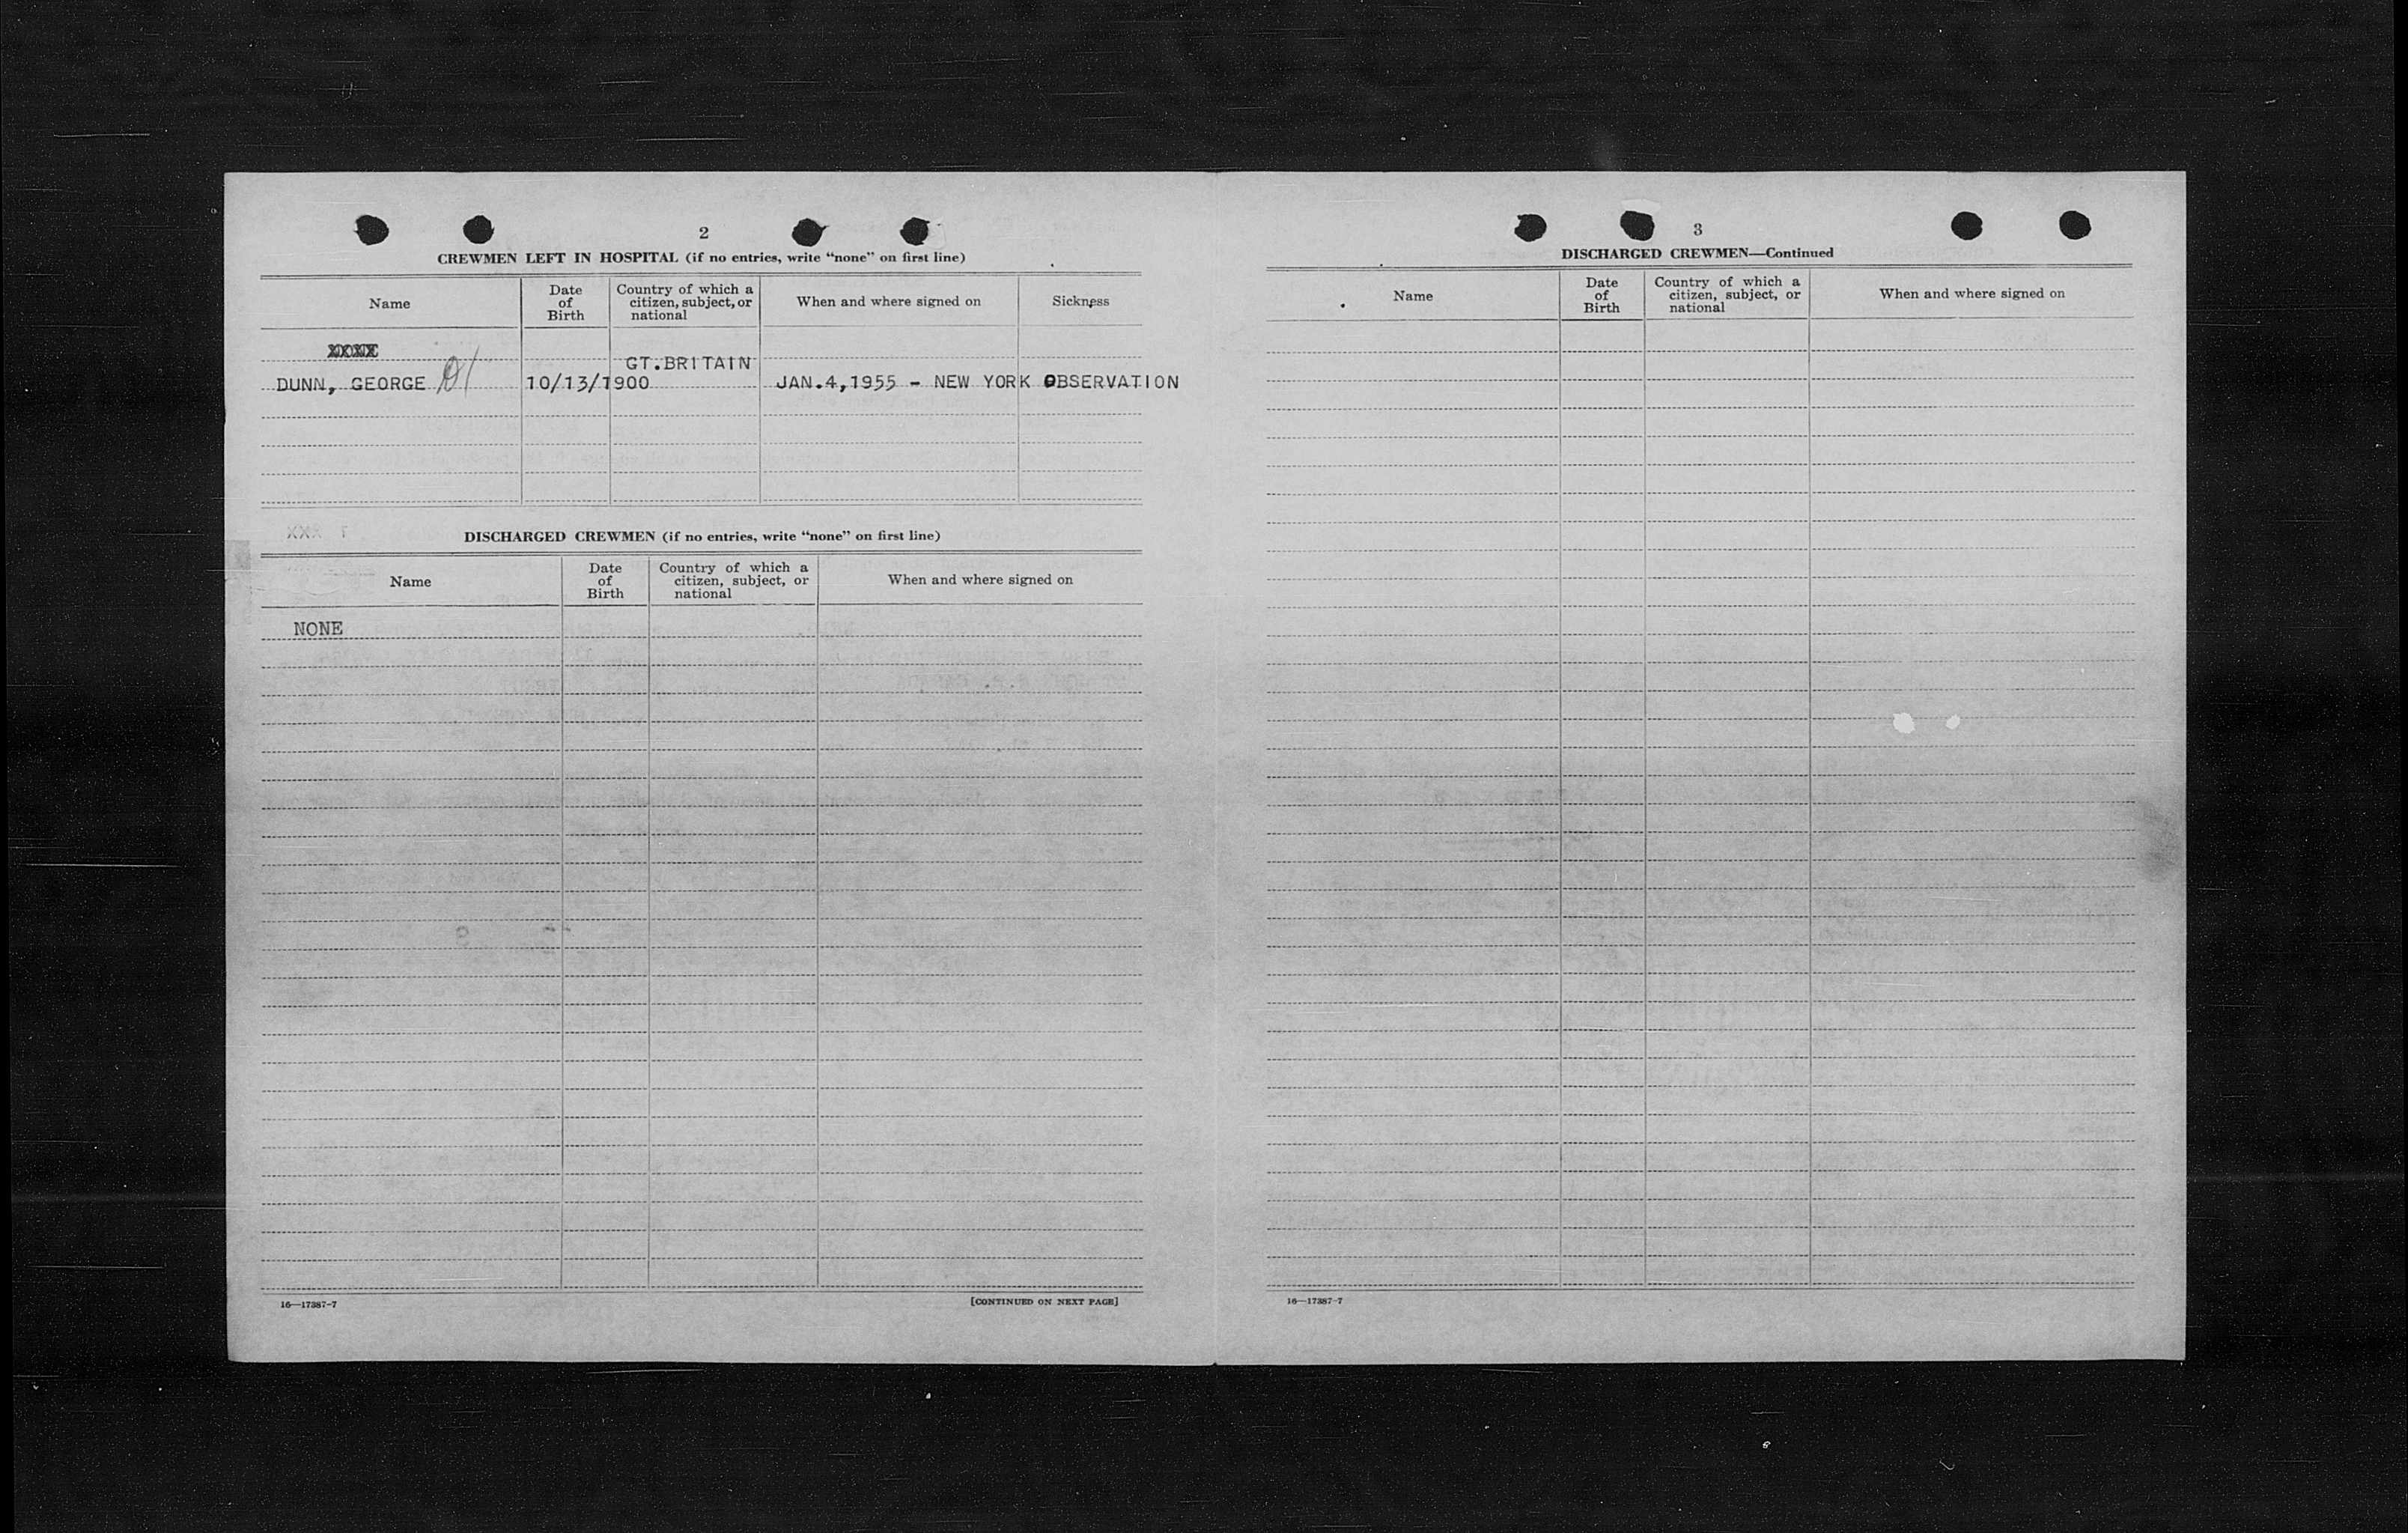 2
CREWMEN LEFT IN HOSPITAL (if no entries, write “none” on first line)
Name
Date of Birth
Country of which a citizen, subject, or national
When and where signed on
Sickness
NONE
GT.BRITAIN
DUNN, GEORGE 10/13/1900 JAN.4,1955 - NEW YORK OBSERVATION
DISCHARGED CREWMEN (if no entries, write “none” on first line)
Name
Date of Birth
Country of which a citizen, subject, or national
When and where signed on
NONE
16—17387-7
[CONTINUED ON NEXT PAGE]
3
DISCHARGED CREWMEN—Continued
Name
Date of Birth
Country of which a citizen, subject, or national
When and where signed on
16—17387-7